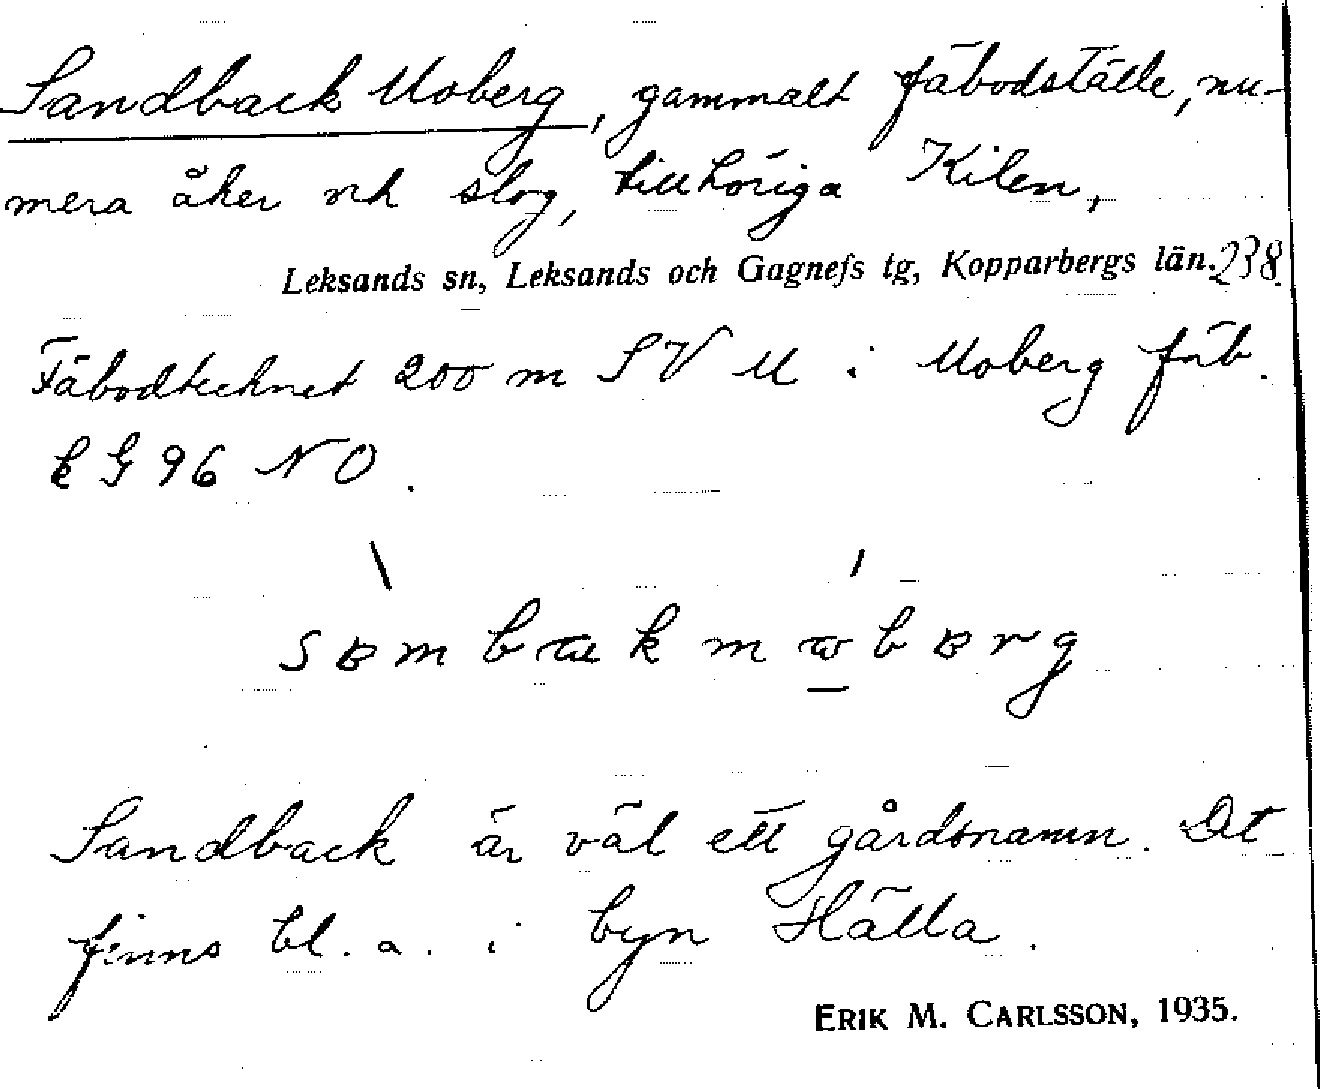 Sandback Moberg, gammalt fäbodställe, nu-
mera åker och slog, tillhöriga Kilen,
Leksands sn, Leksands och Gagnefs tg, Kopparbergs län. 238.
Fäbodtecknet 200 m SV M i Moberg fäb.
k G 96 NO.
Sandback är väl ett gårdsnamn. Det
finns bl. a. i byn Hälla.
ERIK M. CARLSSON, 1935.